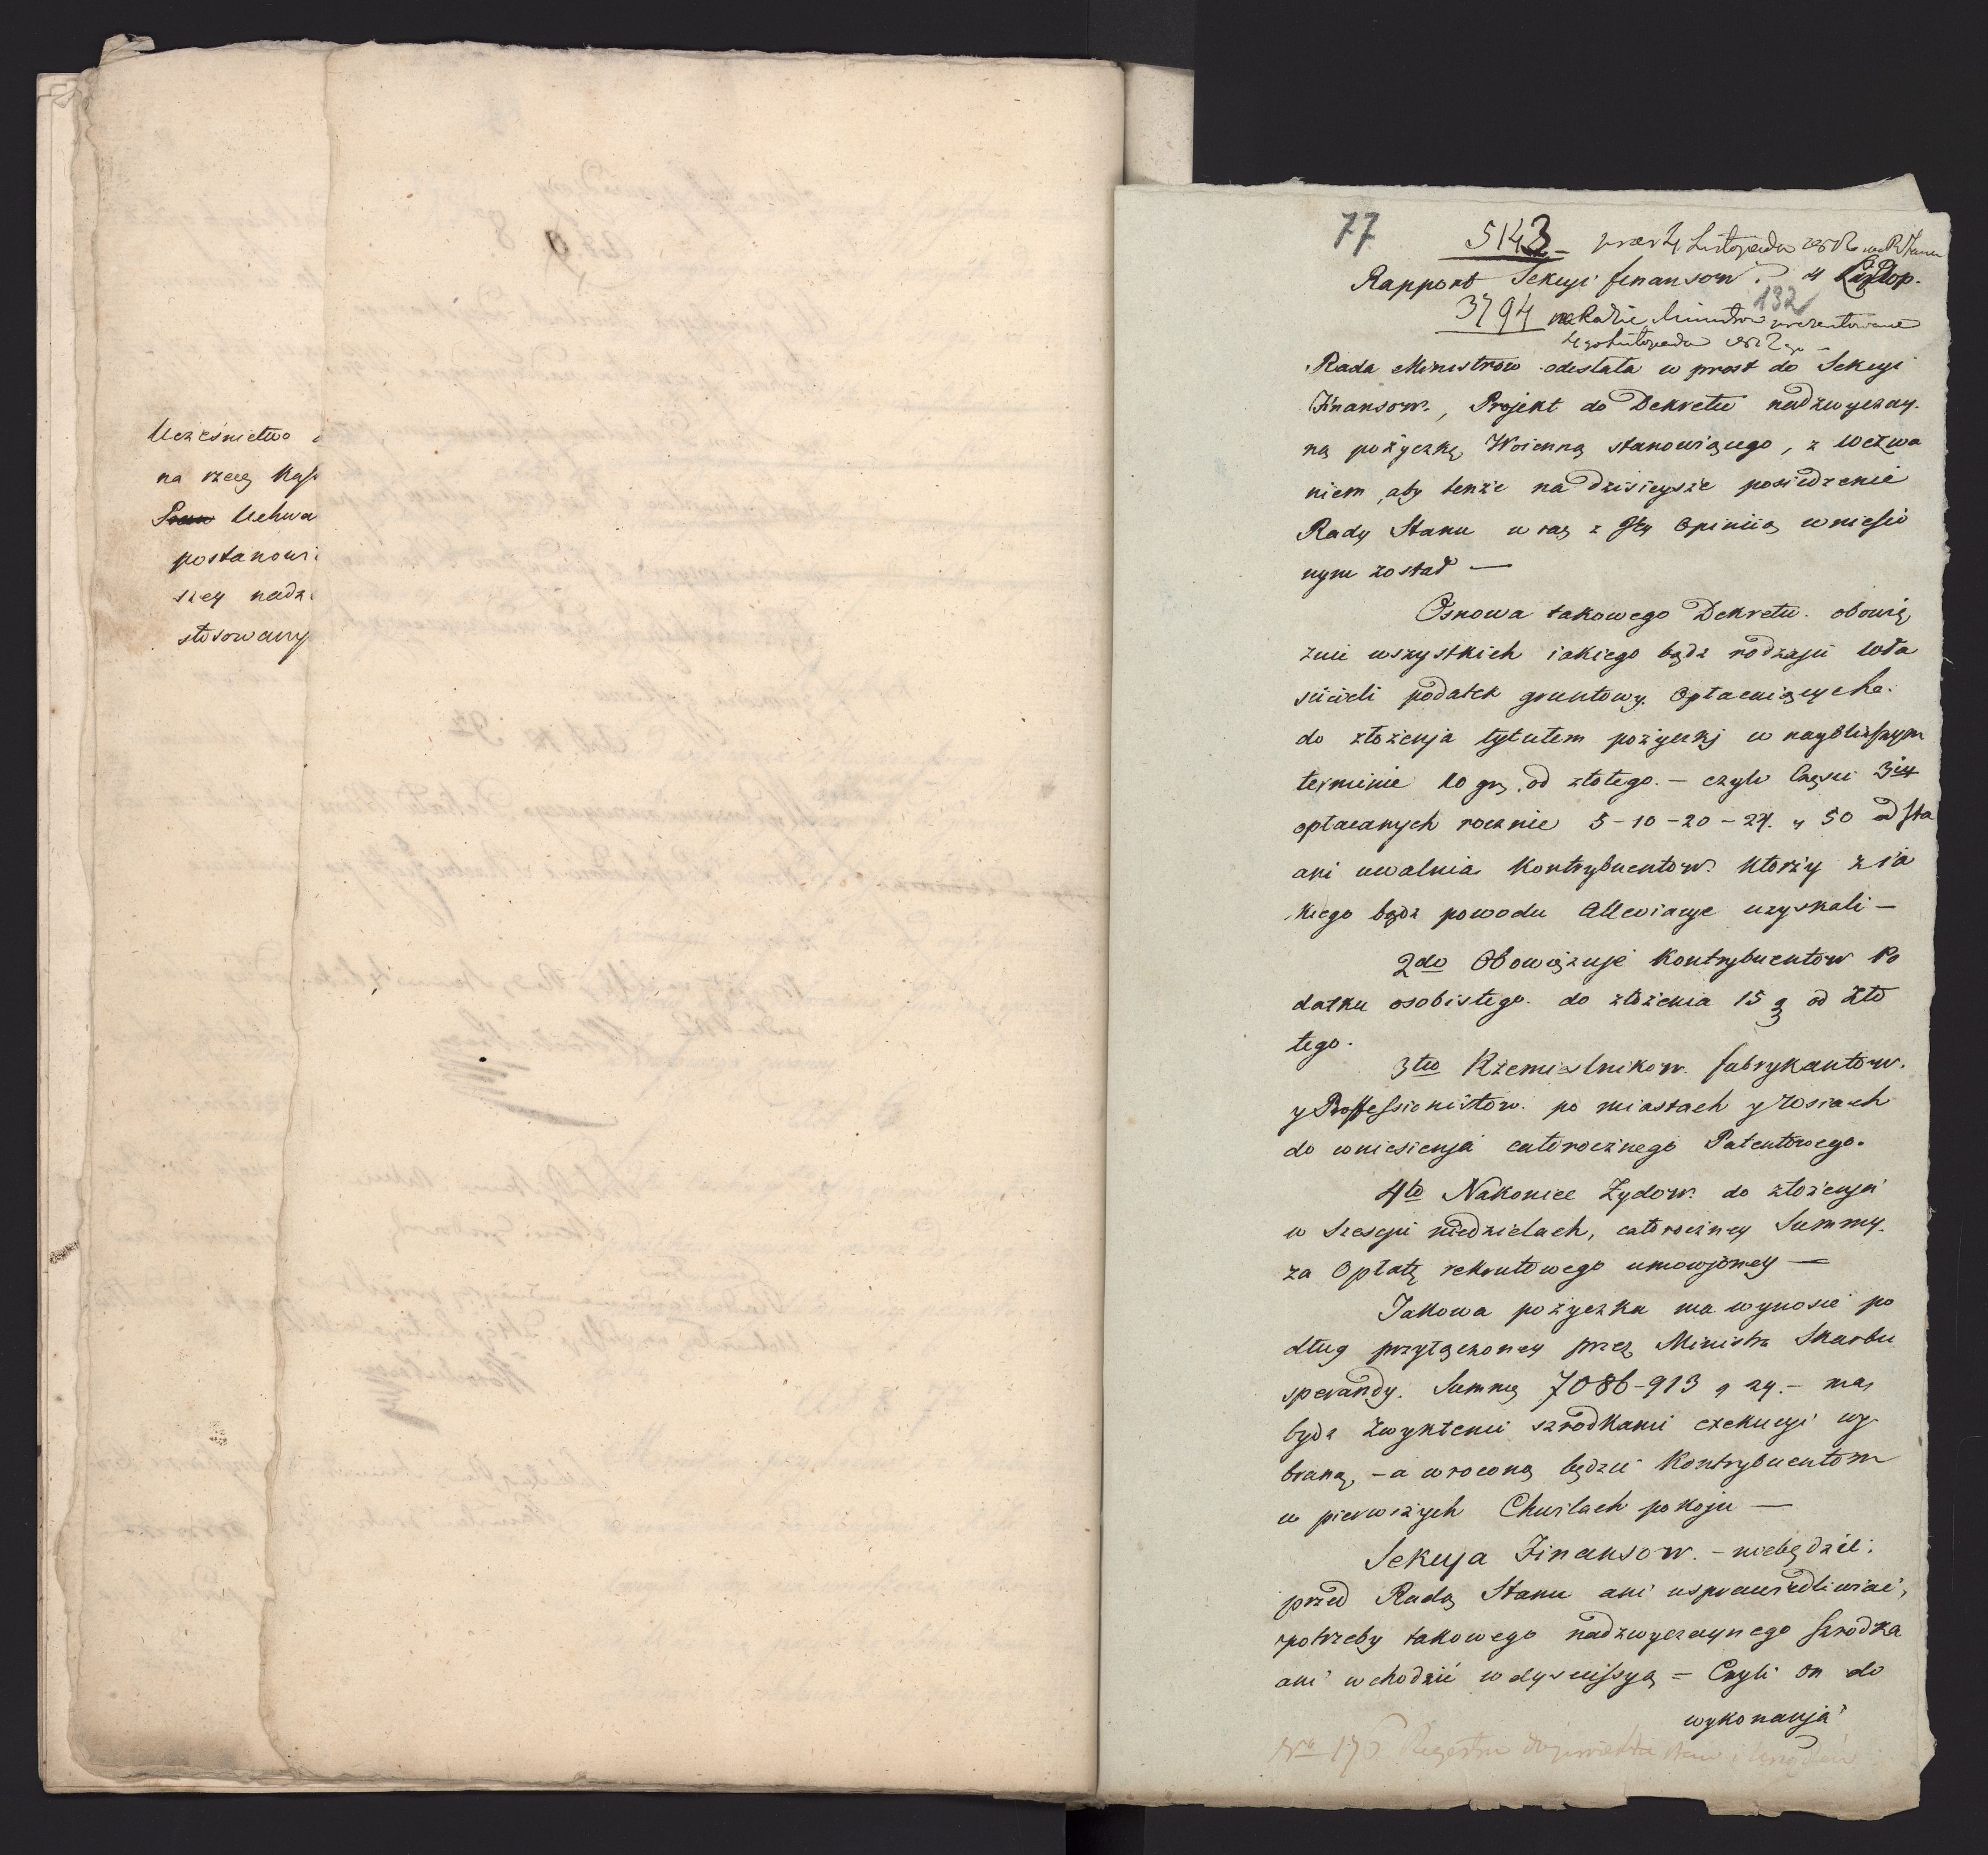 Uczesnictwo
na rzecz Kass
Praw Uchwa
postanowi
szey nadz
stosowany
77
5143 – 4 Listopada
Rapport Sekcyi finansow. 4 Listop.
132
3794 na Radzie Ministrow prezentowane
4go Listopada
Rada Ministrow odesłała w prost do Sekcyi
Finansow., Projekt do Dekretu nadzwyczay.
ną pożyczkę Woienną stanowiącego, z wezwa
niem, aby tenże na dzisieysze posiedzenie
Rady Stanu wraz z Jey Opiniią wniesio
nym został —
Osnowa takowego Dekretu. obowią
zuie wszystkich iakiego bądz rodzaju wła
scicieli podatek gruntowy. Opłacaiących.
do złożenja tytułem pożyczkj w nayblizszym
terminie 10 gr. od złotego. — czyli Częsci 3iey
opłacanych rocznie 5-10-20-24. y 50 od sta
ani uwalnia Kontrybuentow. Ktorzy z ia
kiego bądz powodu Allewiacye uzyskali —
2do Obowiązuje Kontrybuentow Po
datku osobistego. do złożenia 15 g od Zło
tego.
3tio Rzemieslnikow. fabrykantow.
y Proffessionistow. po miastach y wsiach
do wniesienja całorocznego Patentowego.
4to Nakoniec Zydow. do złożenja
w Szesciu niedzielach, całoroczney Summy.
za Opłatę rekrutowego umowjoney —
Jakowa pożyczka ma wynosić po
dług przyłączoney przez Ministra Skarbu
sperandy. Summę 7086-913 g 24. — ma,
bydz zwykłemi szrodkami exekucyi wy
braną, — a wroconą będzie Kontrybuentom
w pierwszych Chwilach pokoju —
Sekcya Finansow. — niebędzie.
przed Radą Stanu ani usprawiedliwiać,
potrzeby takowego nadzwyczaynego szrodka
ani wchodzić w dyscussyą = Czyli on do
wykonanja
No 170